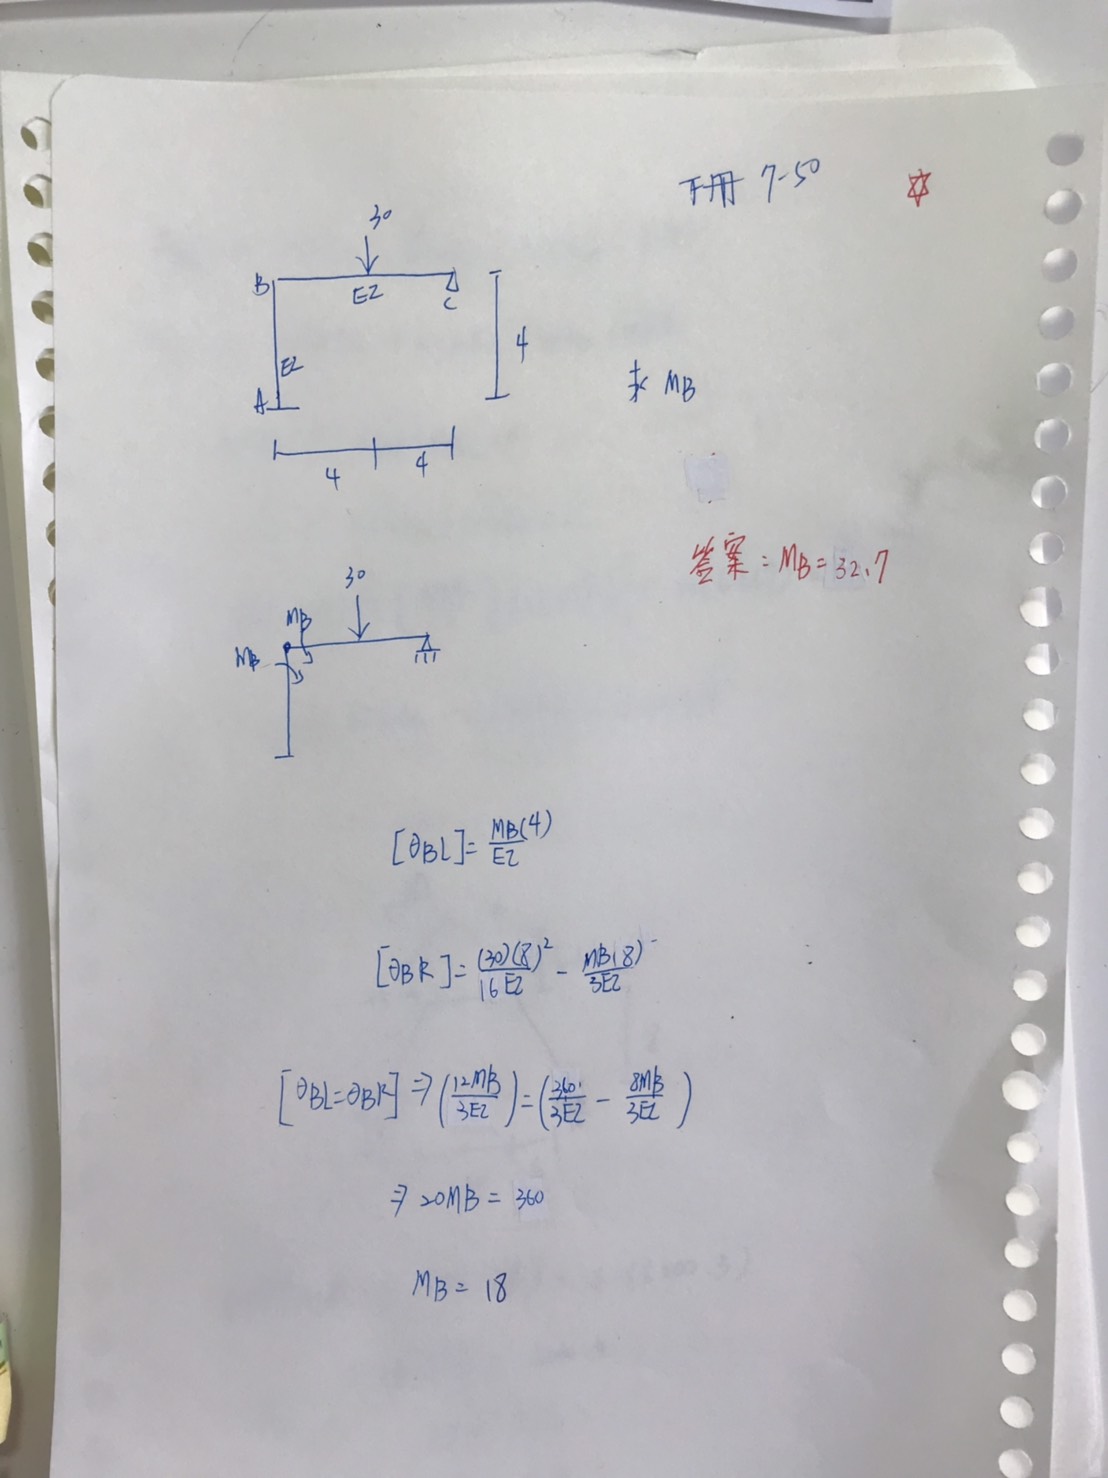 下冊 7-50
30
B
EI
C
4
EI
A
求 MB
4
4
答案：MB=32.7
30
MB
MB
[θBL]=MB(4)/EI
[θBR]=(30)(8)²/16EI - MB(8)/3EI
[θBL=θBR]⇒(12MB/3EI)=(360/3EI - 8MB/3EI)
⇒20MB=360
MB=18